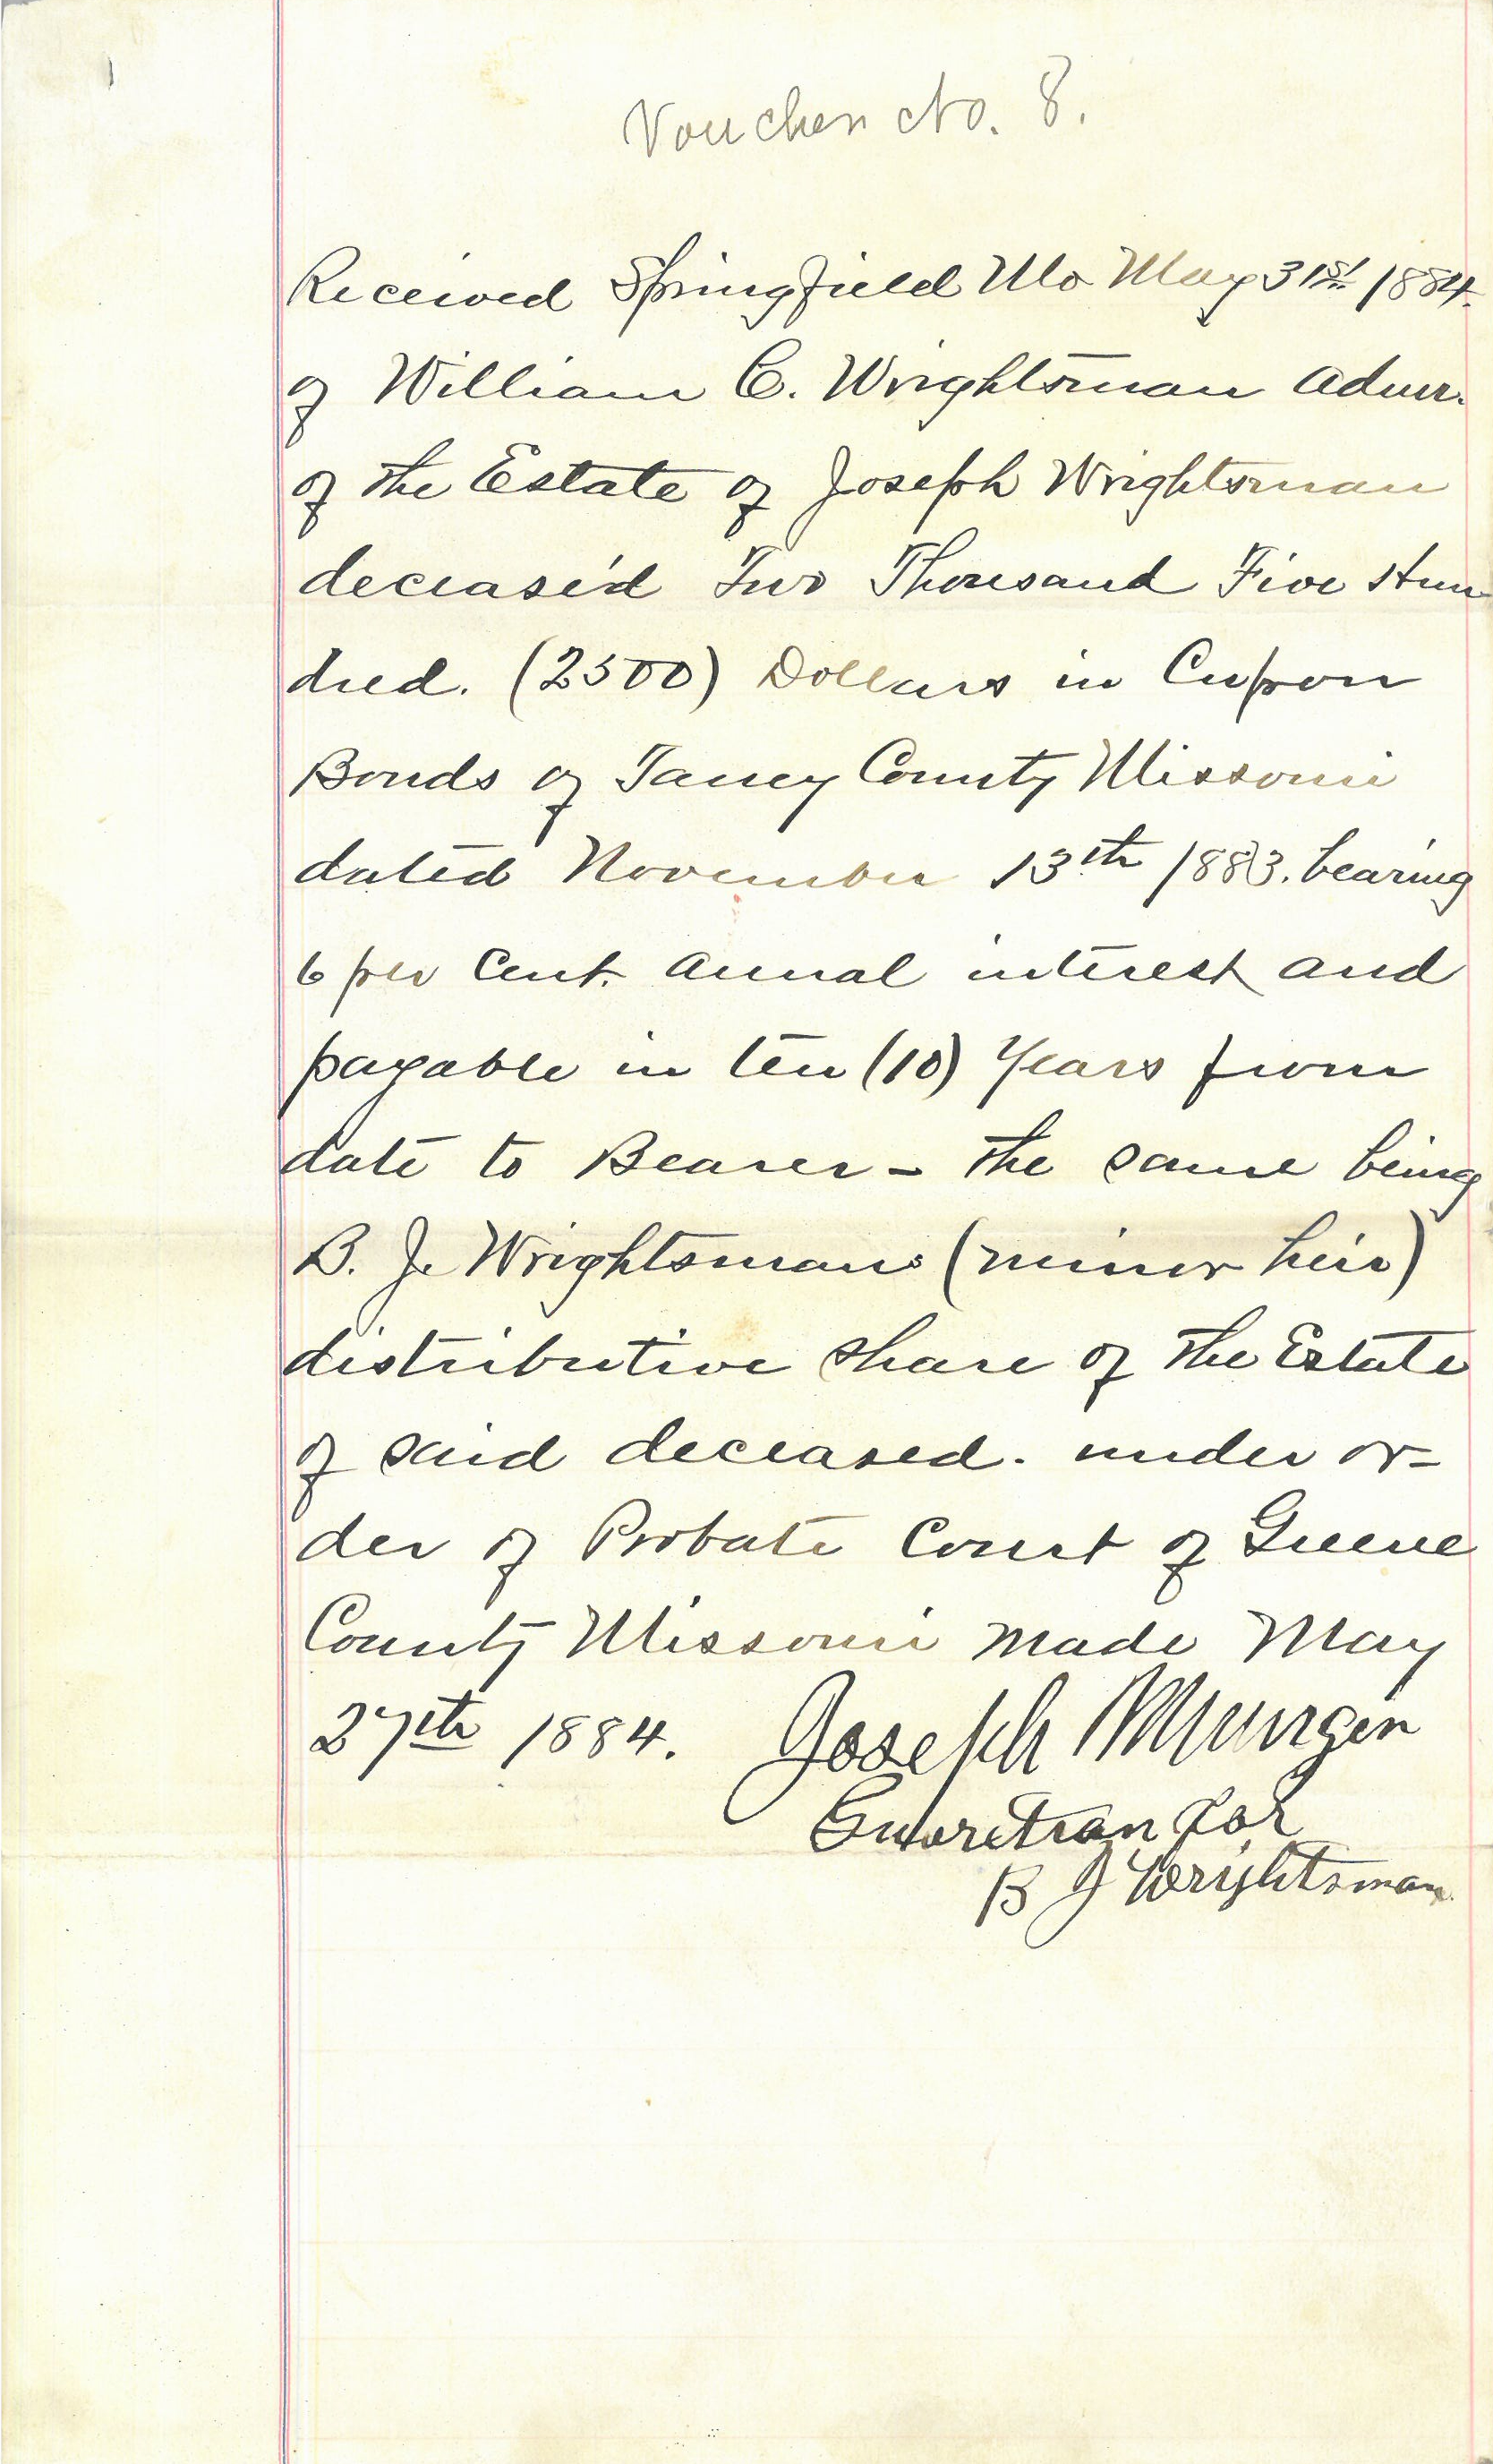 Voucher No. 8.
Received Springfield Mo May 31st 1884.
of William C. Wrightsman Admr.
of the Estate of Joseph Wrightsman
deceased Two Thousand Five Hun
dred. (2500) Dollars in Cupon
Bonds of Taney County Missouri
dated November 13th 1883. bearing
6 per Cent. annual interest and
payable in ten (10) Years from
date to Bearer – the same being
B. J. Wrightsmans (minor heir)
distributive share of the Estate
of said deceased. under or–
der of Probate Court of Greene
County Missouri made May
27th 1884. Joseph
for
B J Wrightsman